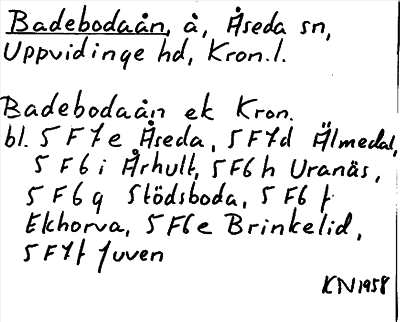 Badebodaån, å, Åseda sn,
Uppvidinge hd, Kron.l.
Badebodaån ek Kron.
bl. 5F7e Åseda, 5F7d Älmedal,
5F6i Århult, 5F6h Uranäs,
5F6g Stödsboda, 5F6f
Ekhorva, 5F6e Brinkelid,
5F7f Juven
KN1958